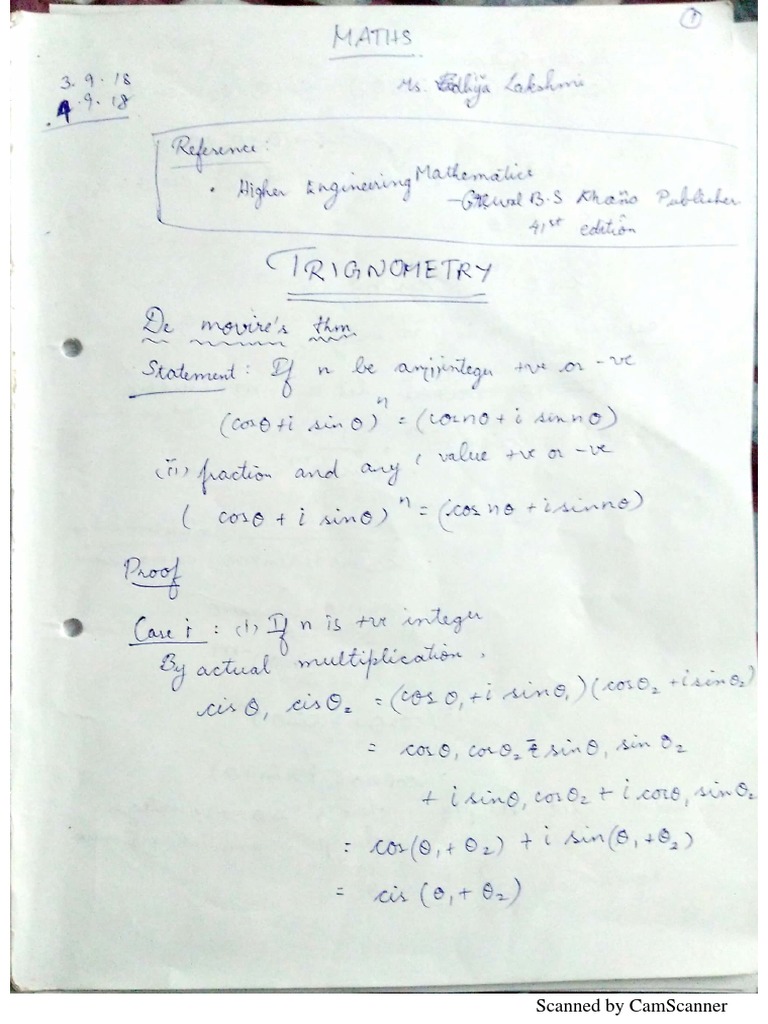 1
MATHS
3.9.18
4.9.18
Ms. Lakshmi
Reference:
• Higher Engineering Mathematics
- B.S Publisher
41st edition
TRIGNOMETRY
De movire's thm
Statement: If n be any integer +ve or -ve
(cosθ+i sinθ)ⁿ = (cosnθ + i sin nθ)
(ii) fraction and any value +ve or -ve
( cosθ + i sinθ)ⁿ = (cos nθ + i sin nθ)
Proof
Case i : (i) If n is +ve integer
By actual multiplication,
cis θ₁ cis θ₂ = (cos θ₁ + i sin θ₁)(cos θ₂ + i sin θ₂)
= cosθ₁ cosθ₂ - sinθ₁ sin θ₂
+ i sinθ₁ cosθ₂ + i cosθ₁ sinθ₂
= cos(θ₁ + θ₂) + i sin(θ₁ + θ₂)
= cis (θ₁ + θ₂)
Scanned by CamScanner